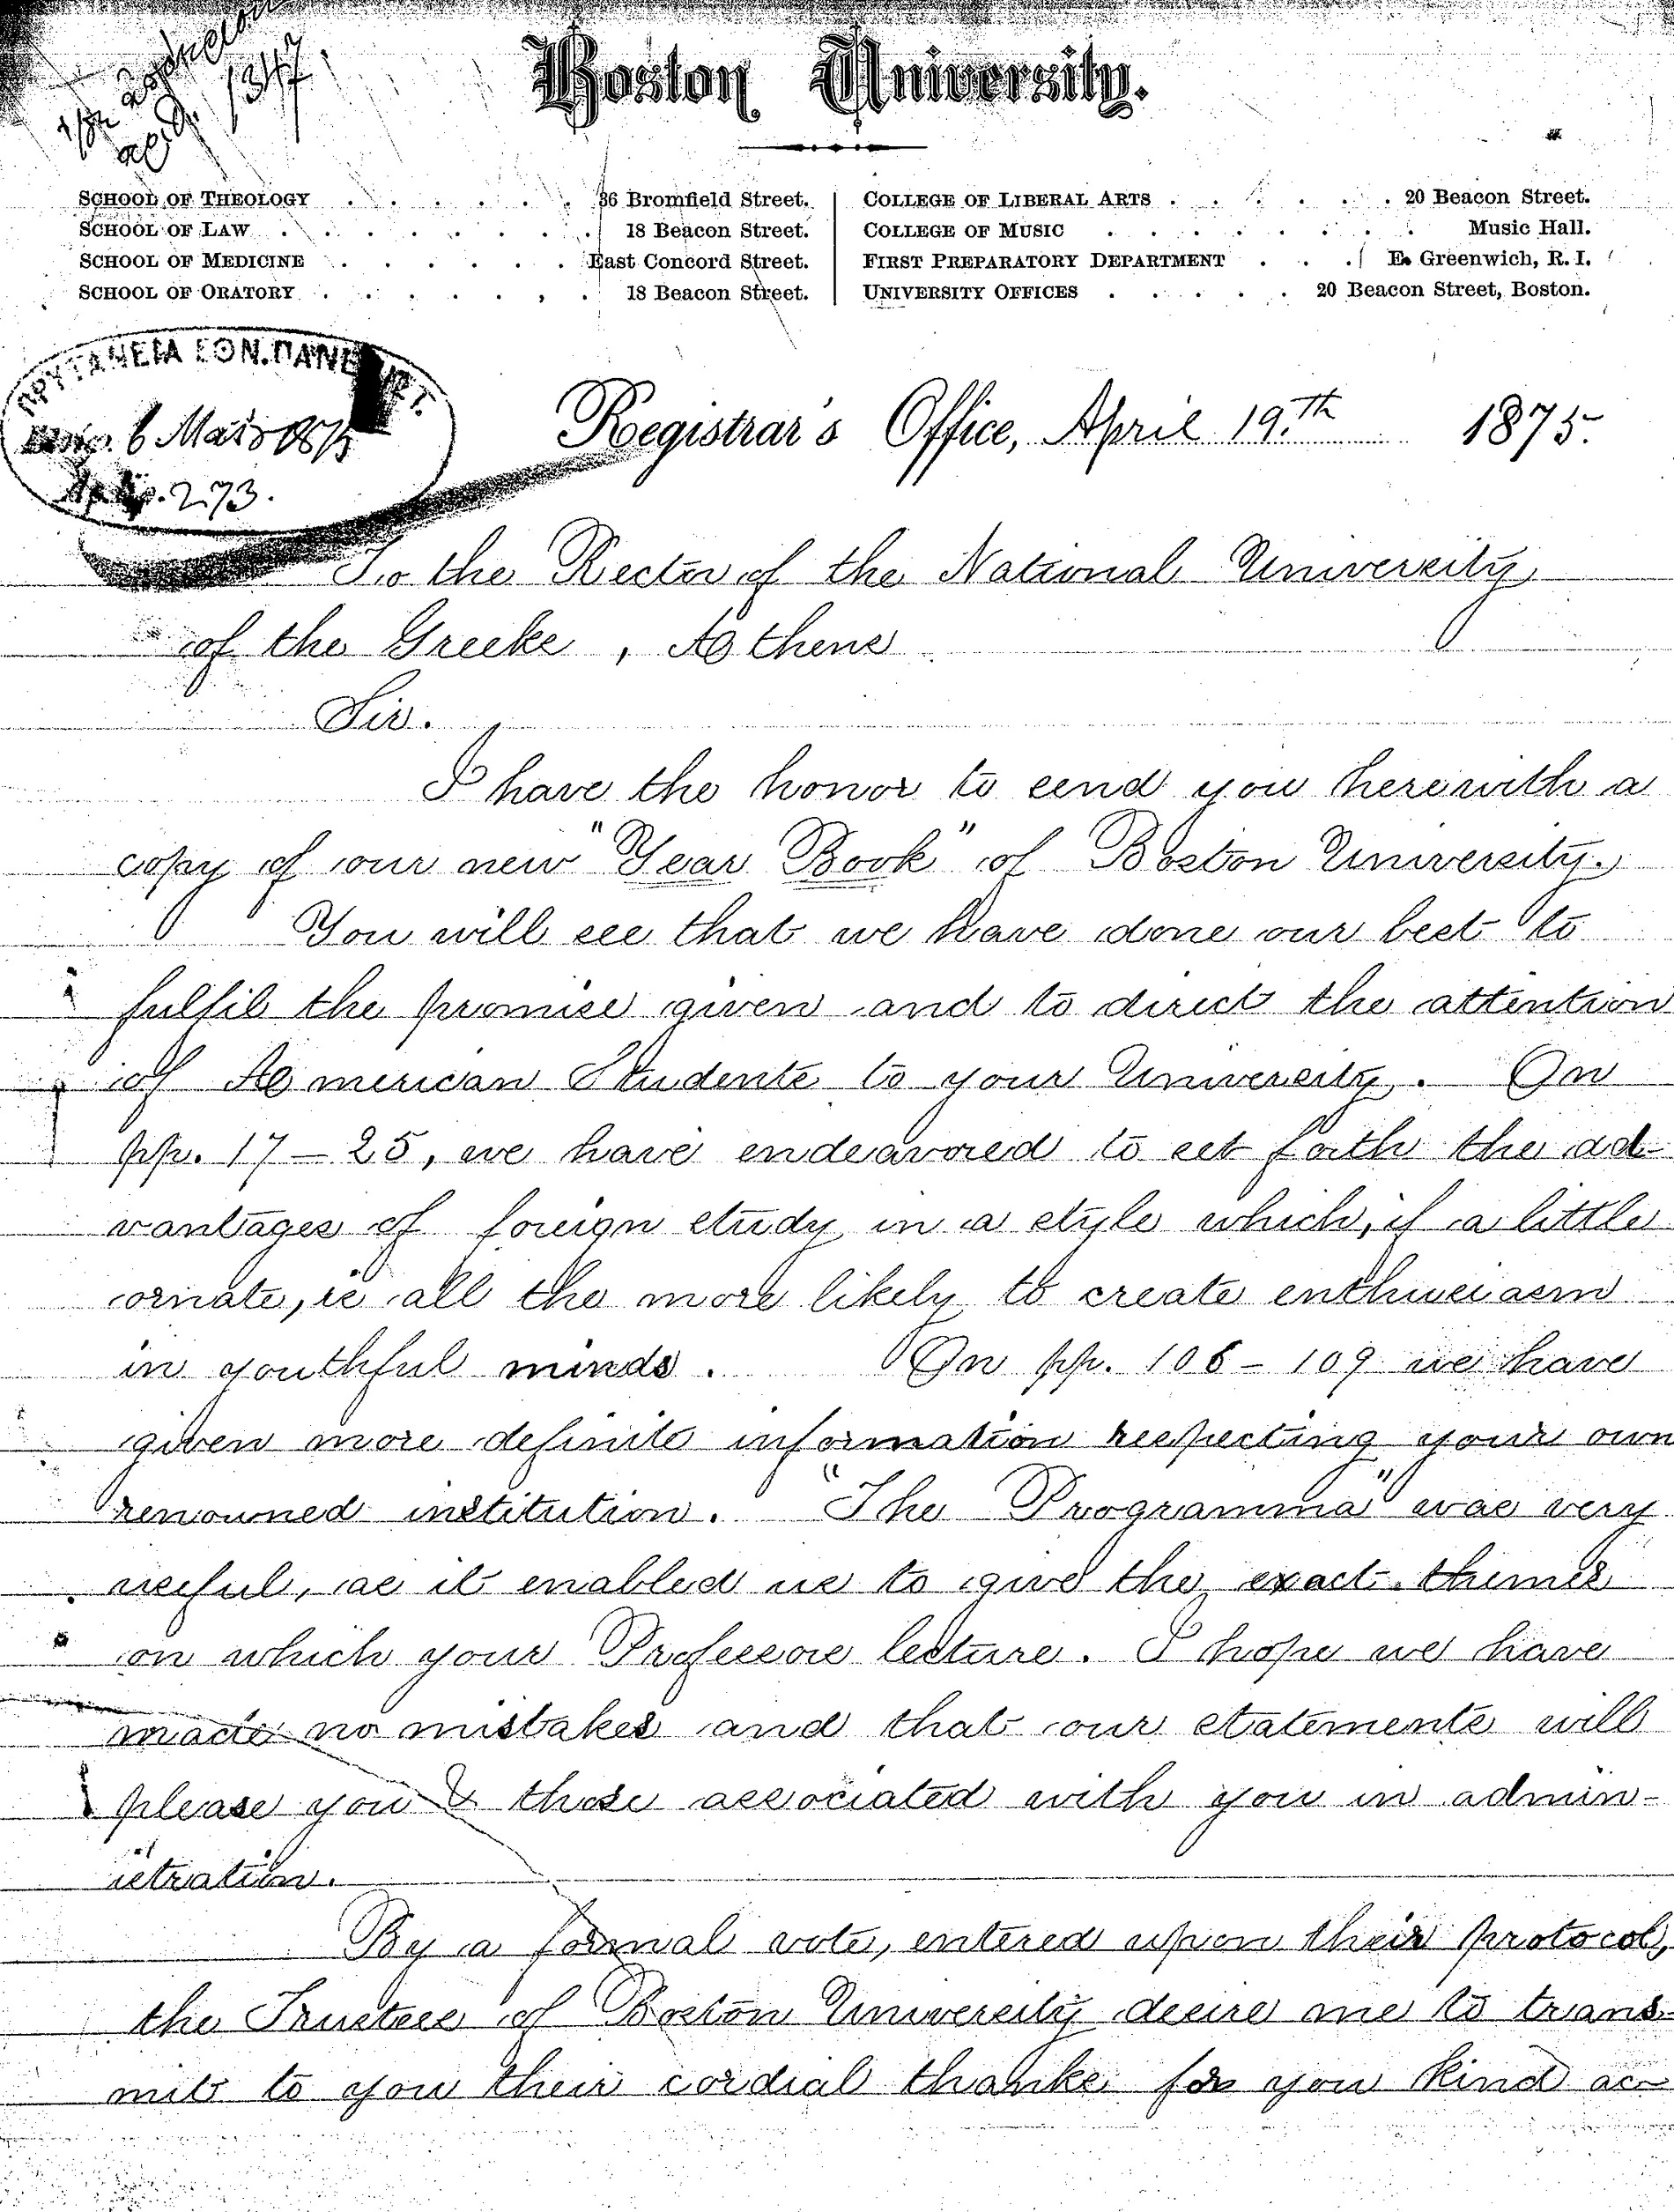 Boston University.
SCHOOL OF THEOLOGY . . . . . . 36 Bromfield Street.
SCHOOL OF LAW . . . . . . . 18 Beacon Street.
SCHOOL OF MEDICINE . . . . . East Concord Street.
SCHOOL OF ORATORY . . . . . . 18 Beacon Street.
COLLEGE OF LIBERAL ARTS . . . . . . 20 Beacon Street.
COLLEGE OF MUSIC . . . . . . . Music Hall.
FIRST PREPARATORY DEPARTMENT . . . E. Greenwich, R. I.
UNIVERSITY OFFICES . . . . . 20 Beacon Street, Boston.
6
273.
Registrar's Office, April 19th 1875.
To the Rector of the National University
of the Greeks, Athens
Sir.
I have the honor to send you herewith a
copy of our new "Year Book" of Boston University.
You will see that we have done our best to
fulfil the promise given and to direct the attention
of American Students to your University. On
pp. 17–25, we have endeavored to set forth the ad-
vantages of foreign study in a style which, if a little
ornate, is all the more likely to create enthusiasm
in youthful minds. On pp. 106–109 we have
given more definite information respecting your own
renowned institution. "The Programma" was very
useful, as it enabled us to give the exact themes
on which your Professors lecture. I hope we have
made no mistakes and that our statements will
please you & those associated with you in admin-
istration.
By a formal vote, entered upon their protocol,
the Trustees of Boston University desire me to trans-
mit to you their cordial thanks for you kind ac-